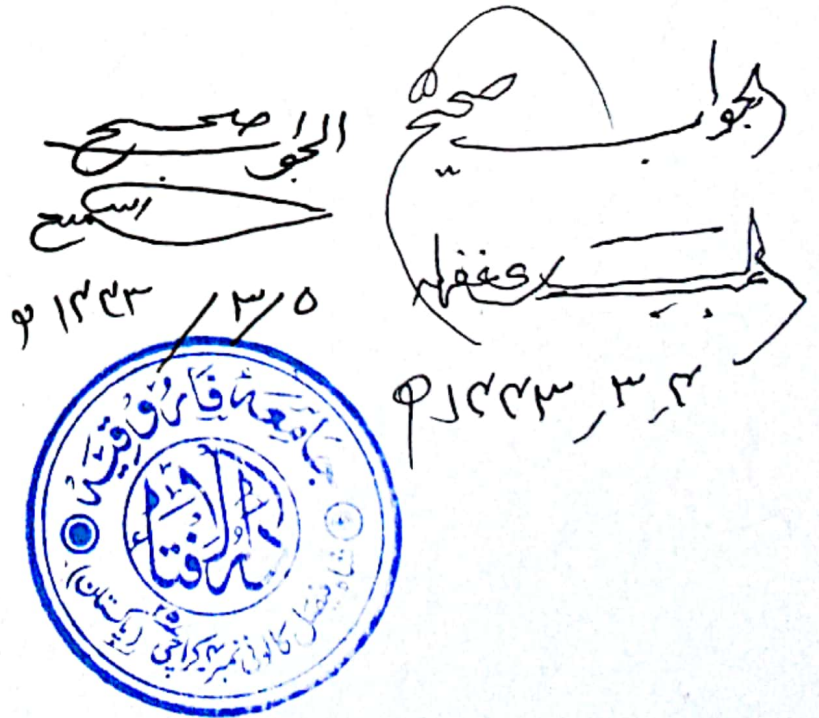 الجواب صحیح
۴ ,۳ ,۱۴۴۳ ھ
الجواب صحیح
سمیع
۵ /۳ / ۱۴۴۳ ھ
جامعہ فاروقیہ
دار الافتاء
شاہ فیصل کالونی نمبر ۴ کراچی ۲۵ (پاکستان)